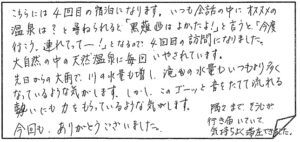 こちらには4回目の宿泊になります。いつも会話の中にオススメの
温泉は？と尋ねられると「黒薙西はよかったよ!」と言うと「今度
行こう。連れてってー！」となるので4回目の訪問になりました。
大自然の中の天然温泉に毎回いやされています。
先日からの大雨で、川の水量も増し、滝の水量もいつもより多く
なっているような気がします。しかし、このゴーッと音をたてて流れる
勢いにも力をもらっているような気がします。
今回も、ありがとうございました。
隅々まで、そうじが
行き届いていて
気持ちよく滞在できました。